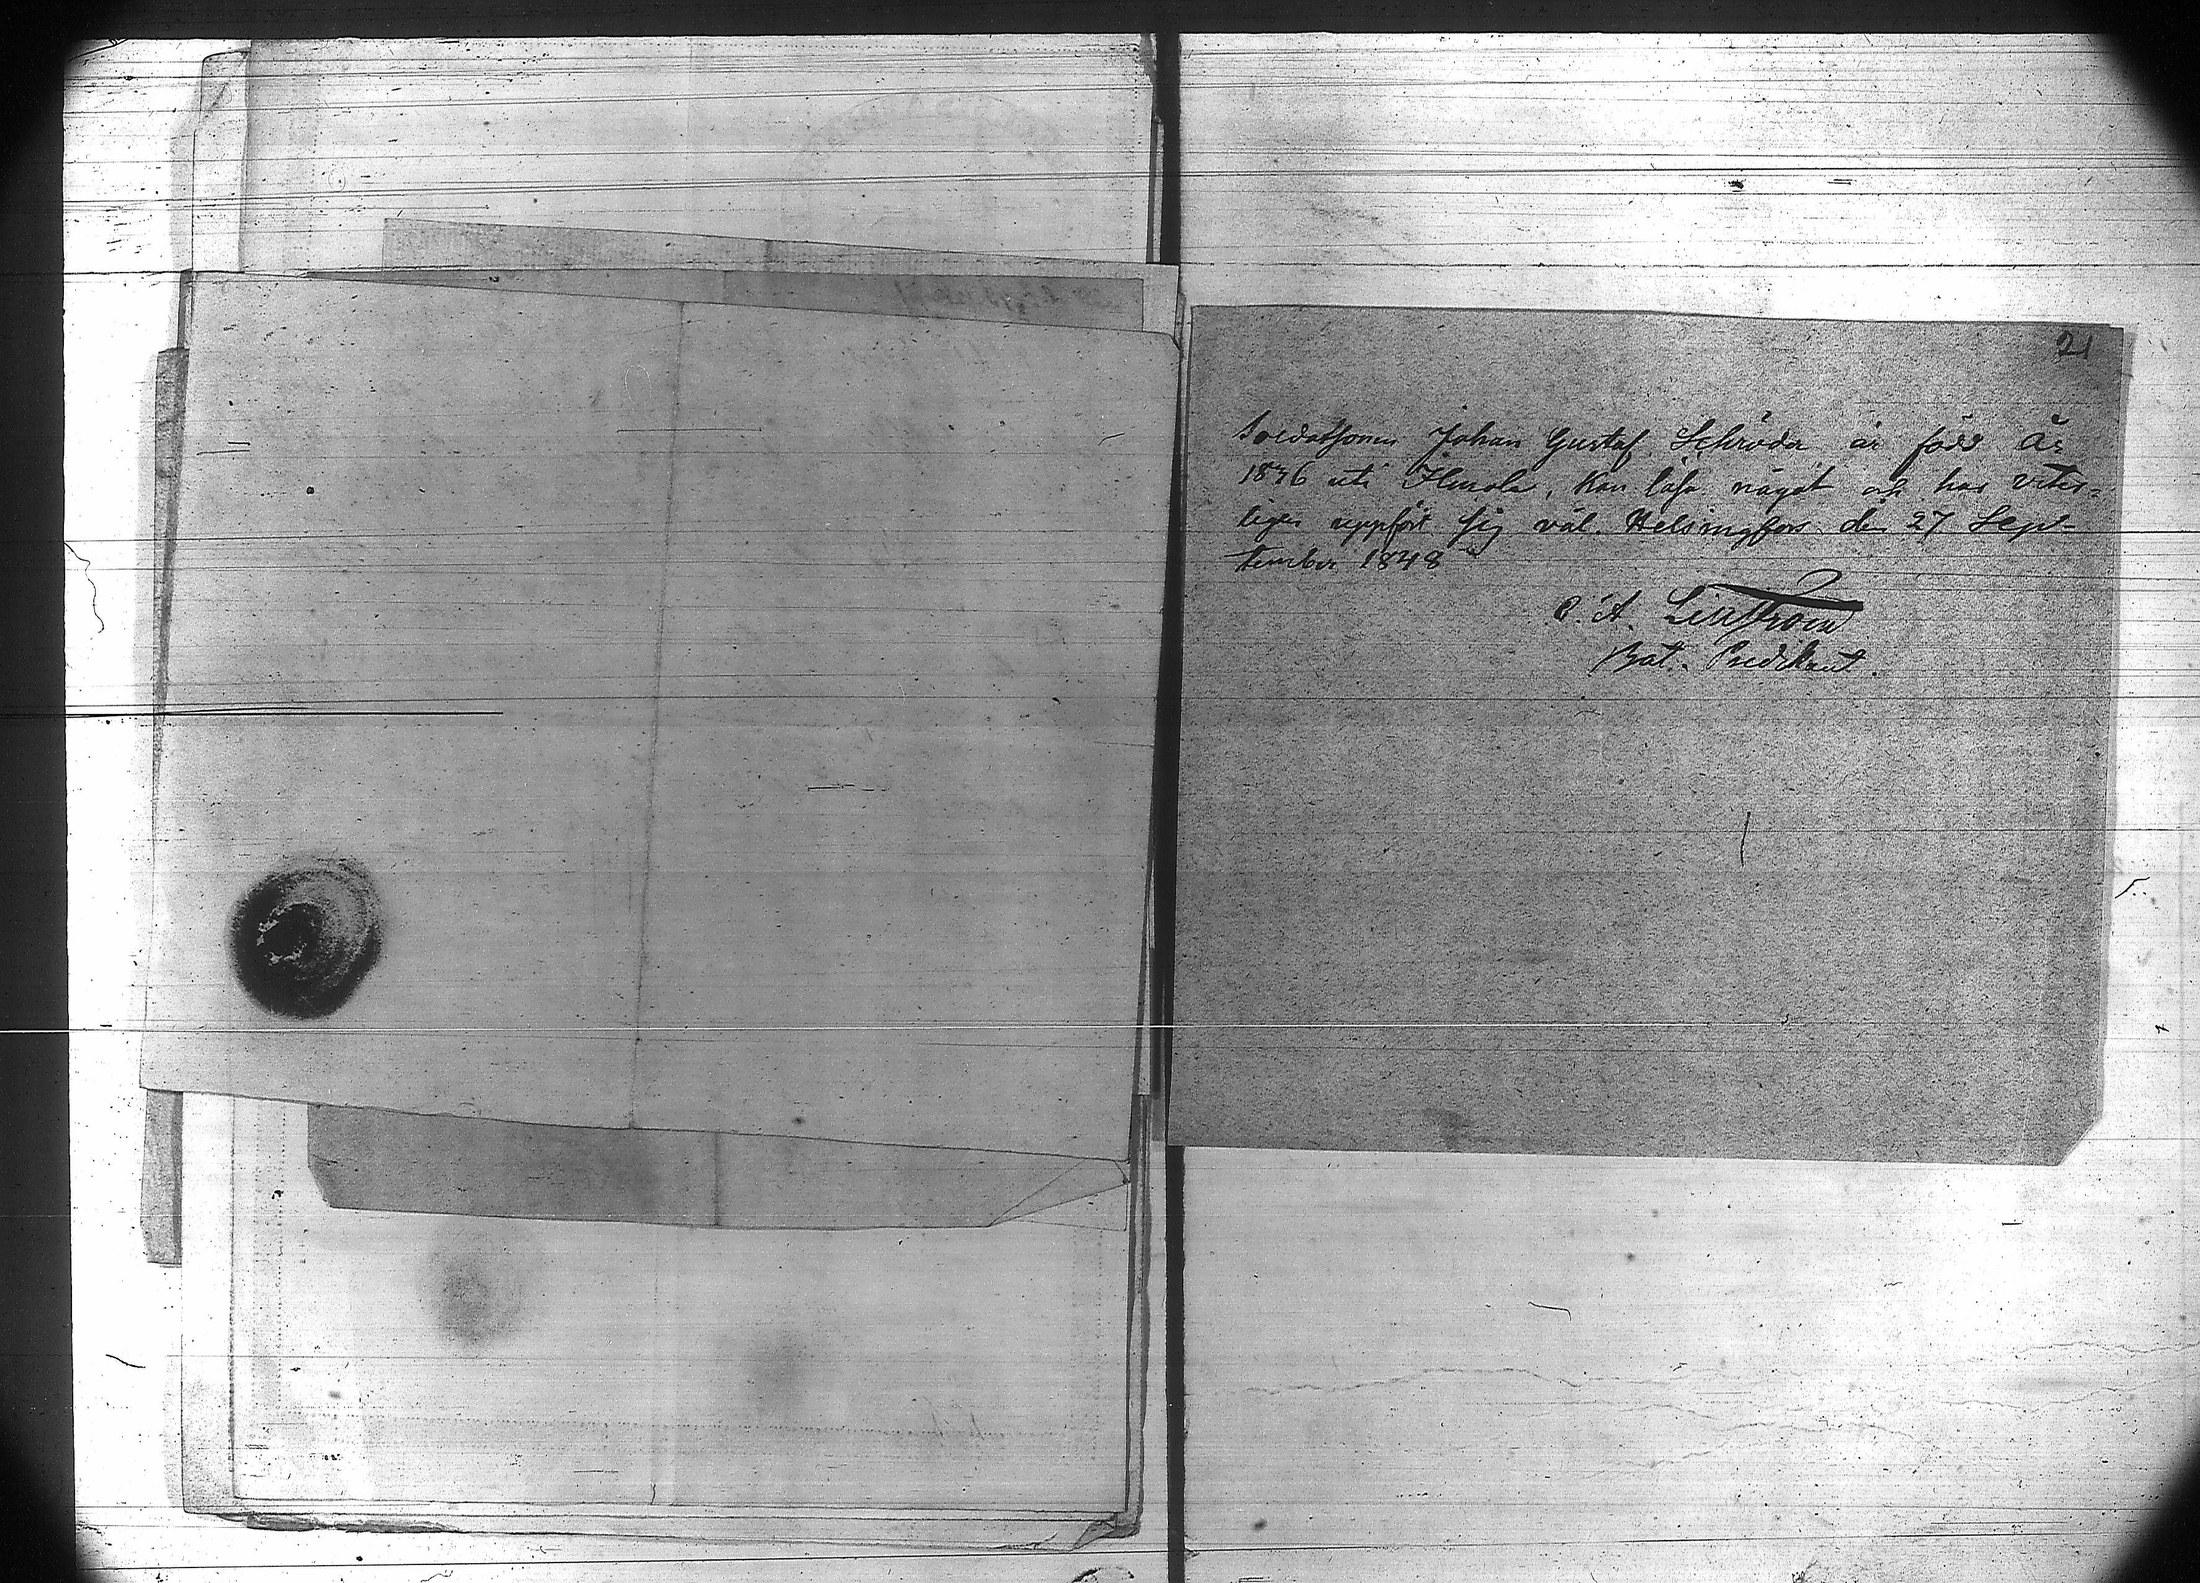 21
Soldatsonen Johan Gustaf Schröder är född År
1836 uti Ilmola, kan läsa något och har veter-
ligen uppfört sig väl. Helsingfors den 27 Sep-
tember 1848
C. A. Linström
Bat. Predikant.